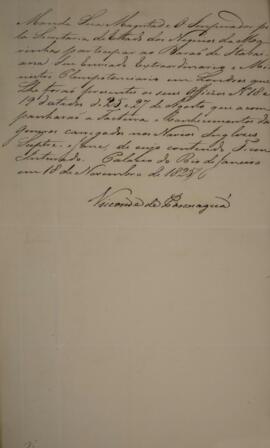 Manda Sua Magestade O Imperador pe
la Secretaria de Estado dos Negocios da Ma
rinha participar ao Barão de Itaba
iana Seu Enviado Extraordinario e Mi
nistro Plenipotenciario em Londres que
Lhe forão presentes os seus Officios Nº 18 e
19 datados de 25 e 27 de Agosto que acom
panharão a factura e Conhecimentos dos
generos carregados nos Navios Inglezes
Jupiter e Jane, de cujo contendo Ficou
Inteirado. Palacio do Rio de Janeiro
em 18 de Novembro de 1826
Visconde de Paranaguá